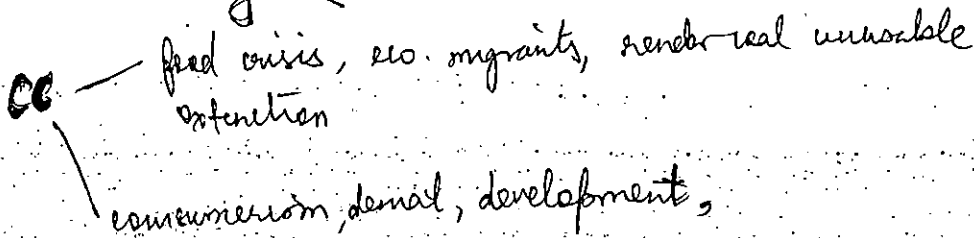 CC — food crisis, eco. migrants, render real unusable
extinction
consumerism, denial, development,